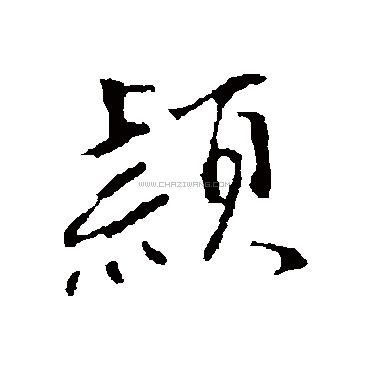 顯
WWW.CHAZIWANG.COM